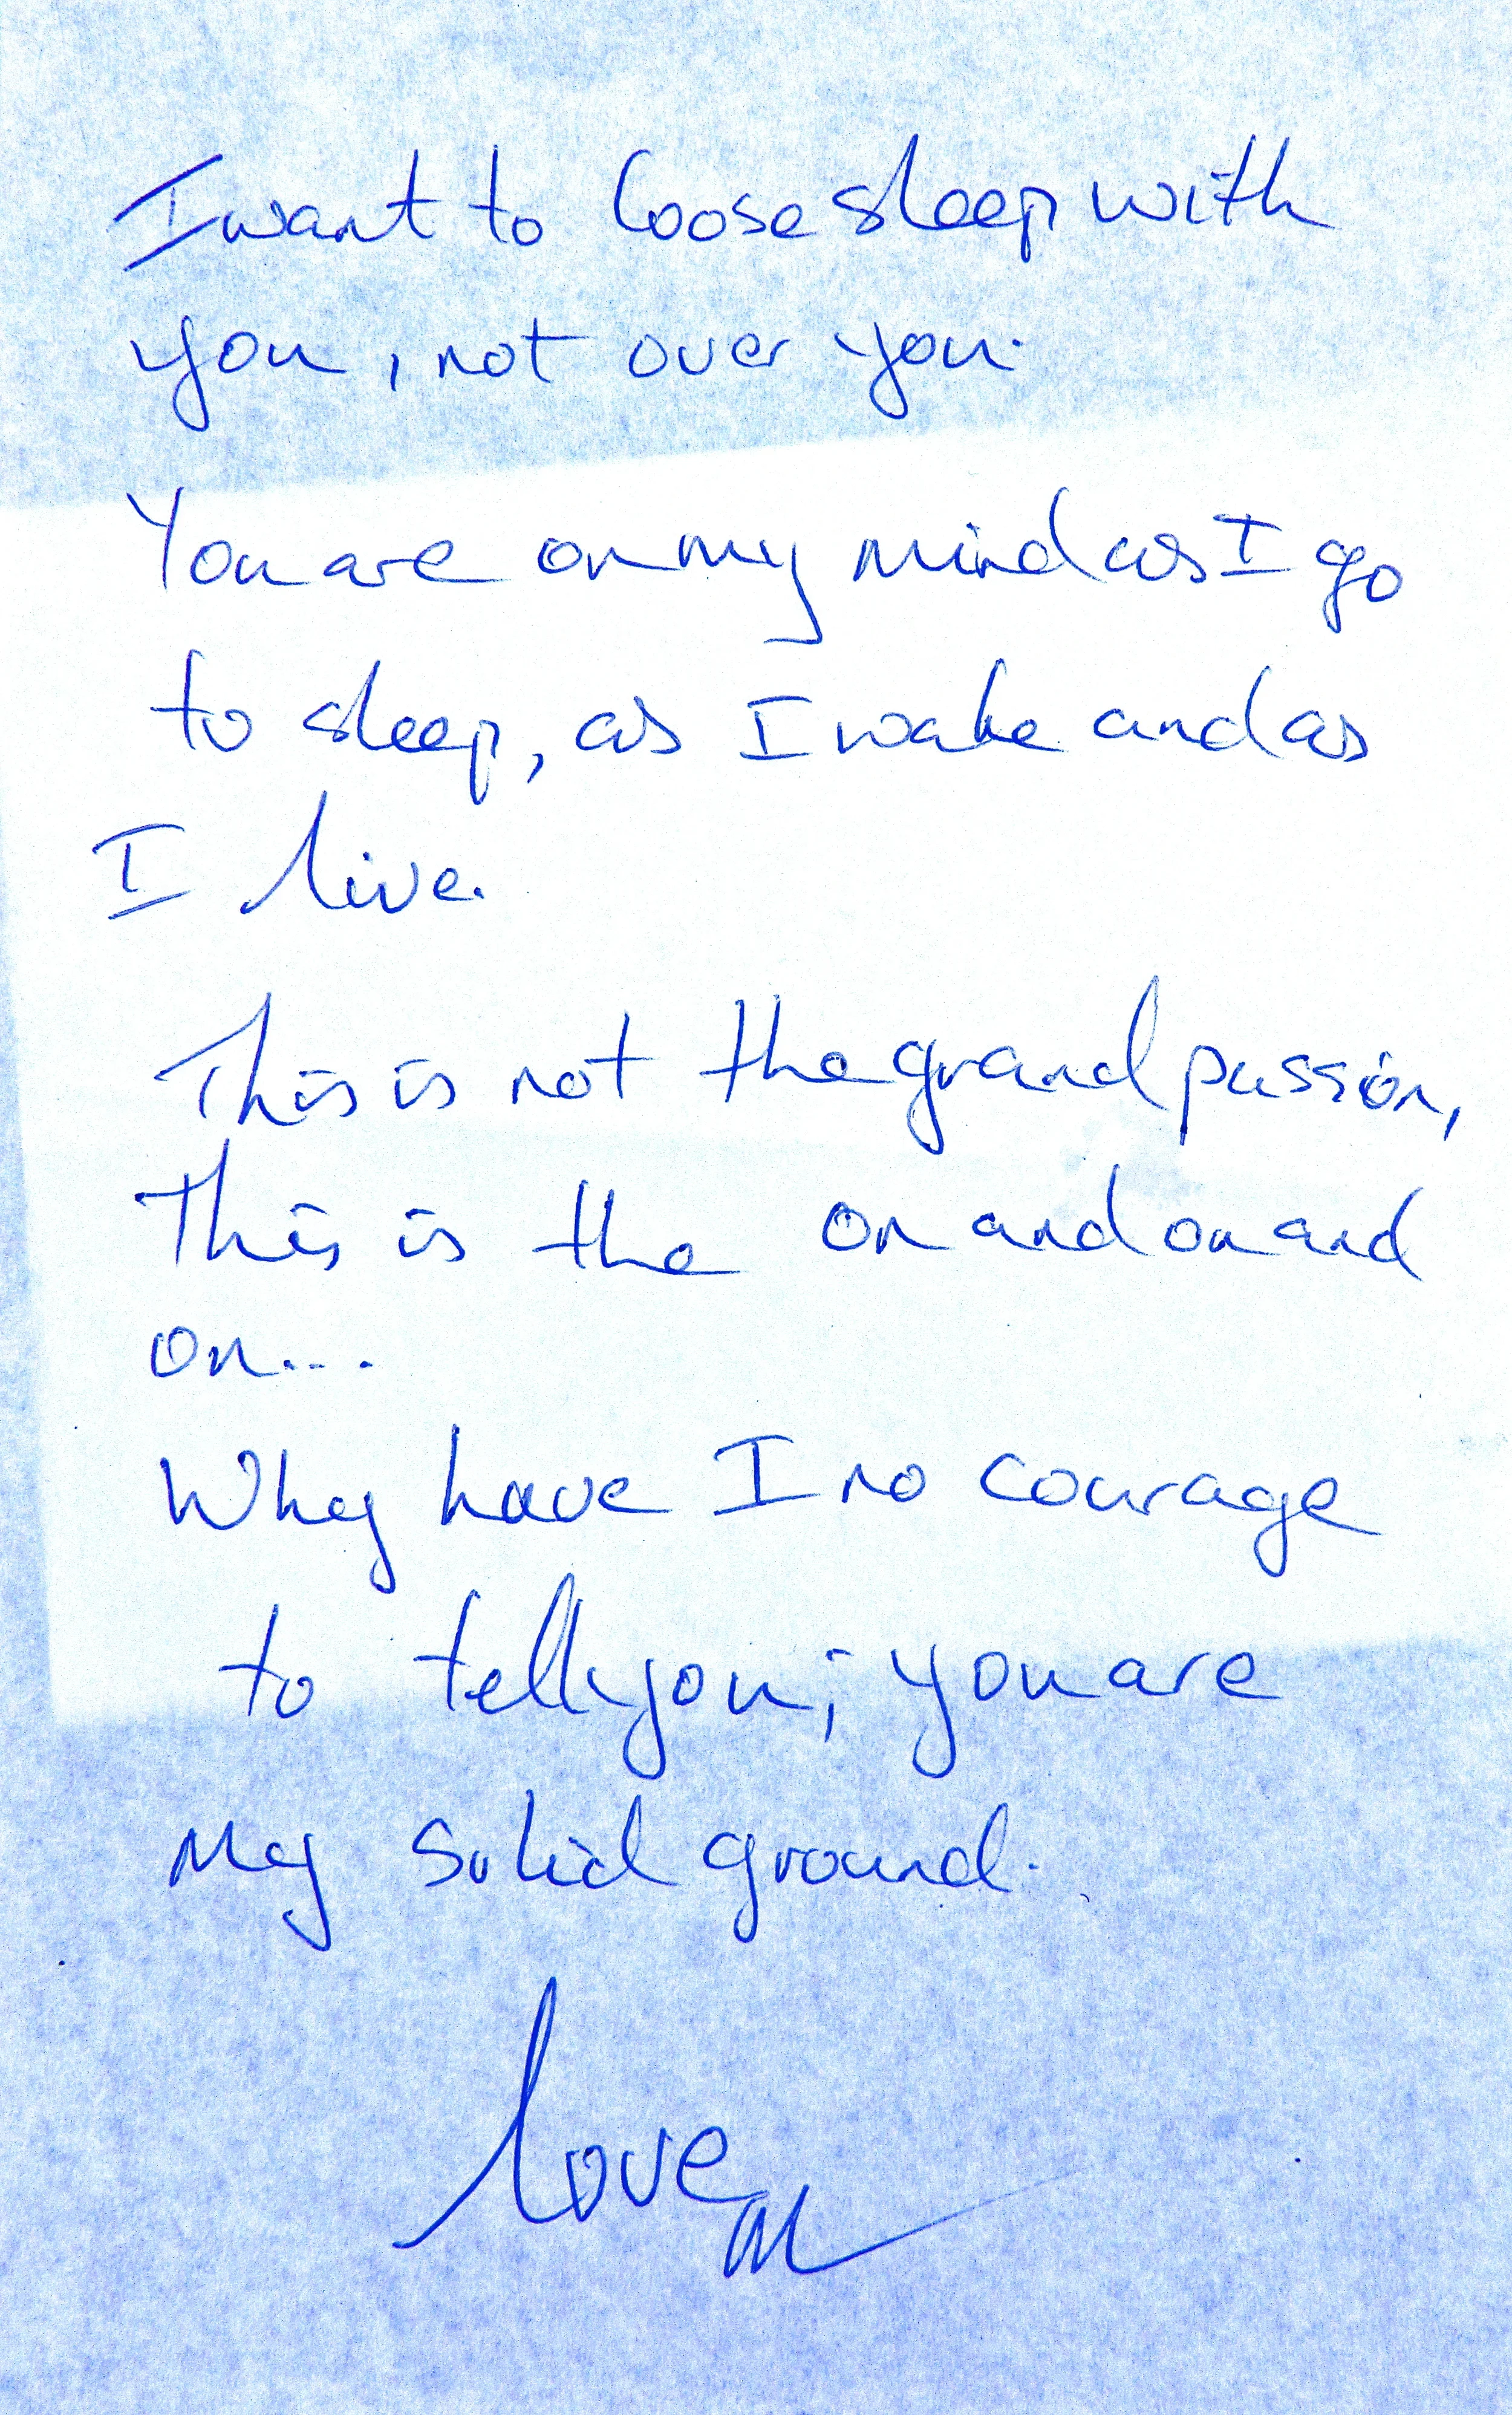 I want to loose sleep with
you, not over you.
You are on my mind as I go
to sleep, as I wake and as
I live.
This is not the grand passion,
This is the on and on and
on...
Why have I no courage
to tell you; you are
my solid ground.
love
M